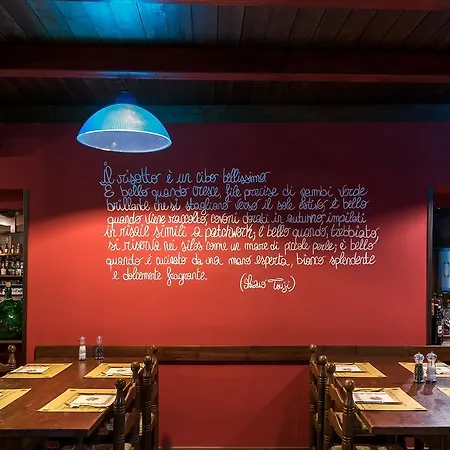 Il risotto è un cibo bellissimo
È bello quando cresce, file precise di gambi verde
brillante cui si stagliano verso il sole estivo, è bello
quando viene raccolto, covoni dorati in autunno, impilati
in risaie simili a patchwork, è bello quando, trebbiato,
si riserva nei silos come un mare di piccole perle; è bello
quando è cucinato da una mano esperta, bianco splendente
e dolcemente fragrante.